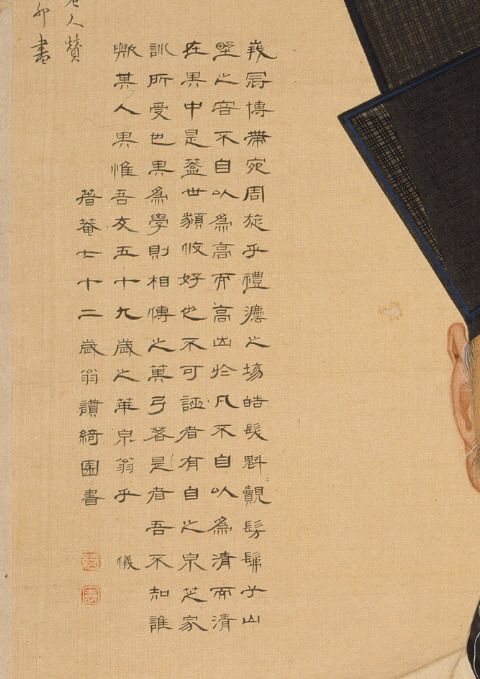 峩冠博帶宛周旋乎禮灋之場皓髮髣髴乎山
埜之容不自以為高而高出於凡不自以為清而清
在其中是蓋世類攸好也不可誣者有自之泉芝家
訓所受也其為學則相傳之箕弓若是者吾不知誰
歟其人其惟吾友五十九歲之華泉翁乎 儀
菴七十二歲翁讚綺園書
人贊
卯書